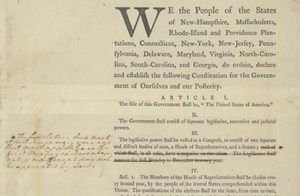 WE the People of the States
of New-Hampshire, Massachusetts,
Rhode-Island and Providence Plan-
tations, Connecticut, New-York, New-Jersey, Penn-
sylvania, Delaware, Maryland, Virginia, North-Caro-
lina, South-Carolina, and Georgia, do ordain, declare
and establish the following Constitution for the Govern-
ment of Ourselves and our Posterity.
ARTICLE I.
The stile of this Government shall be, "The United States of America."
II.
The Government shall consist of supreme legislative, executive and judicial
powers.
III.
The legislative power shall be vested in a Congress, to consist of two separate
and distinct bodies of men, a House of Representatives, and a Senate;
The Legislature shall
meet on the first Monday in December every year.
Sect. 1. The Members of the House of Representatives shall be chosen eve-
ry second year, by the people of the several States comprehended within this
Union. The qualifications of the electors shall be the same, from time to time,